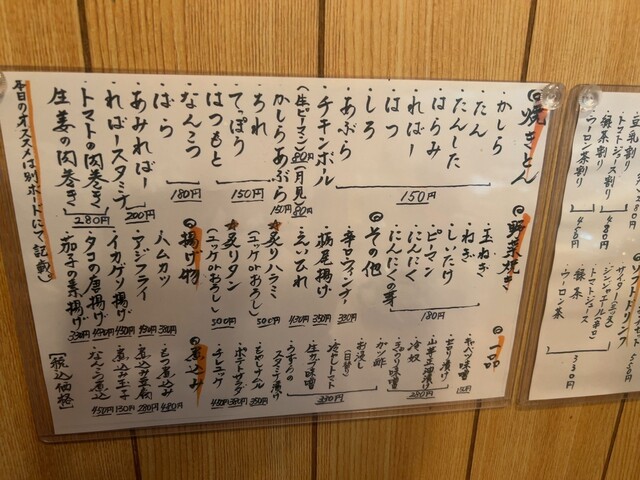 ◎焼きとん
・かしら
・たん
・たんした
・はらみ
・ればー
・はつ
・しろ
・あぶら
150円
・チキンボール
(生ピーマン)80円(月見)80円
・かしらあぶら 150円
・ちれ
・てっぽう
・はつもと
150円
・なんこつ
・ばら
180円
・あみればー 200円
・ればースタミナ
・トマトの肉巻き
・生姜の肉巻き
280円
本日のオススメは別ボードにて記載
◎野菜焼き
・玉ねぎ
・ねぎ
・しいたけ
・ピーマン
・にんにく
・にんにくの芽
180円
◎その他
・辛口ウィンナー 330円
・鶏尾揚げ 350円
・えいひれ 430円
★炙りハラミ
(ユッケorおろし) 500円
★炙りタン
(ユッケorおろし) 500円
◎揚げ物
・ハムカツ 330円
・アジフライ
・イカゲソ揚げ 450円
・タコの唐揚げ
・茄子の素揚げ 330円
◎一品
・キャベツ味噌
・せり漬け
・山芋正油漬け
・冷奴
280円
・ガツ酢
・お浸し
(日替)
・冷やしトマト
・生ガツ味噌
・うずらの
スタミナ漬け
・もやしナムル 350円
・ポテトサラダ
・チャンジャ
◎煮込み
・もつ煮込み
・煮込み豆腐 280円
・煮込み玉子 130円
・なんこつ煮込 450円
[税込価格]
・豆乳割り
・トマトジュース割り
480円
・緑茶割り
・ウーロン茶割り
450円
◎ソフトドリンク
・サイダー(三ツ矢)
・ジンジャエール(辛口)
・トマトジュース
350円
・緑茶
・ウーロン茶
330円